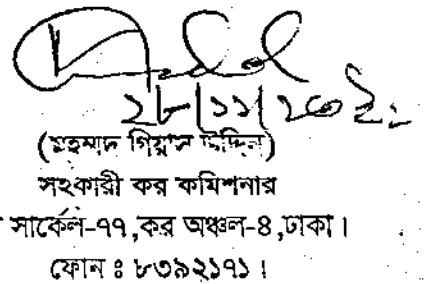 ২৮|১১|২৩ইং
(মুহম্মদ গিয়াস উদ্দিন)
সহকারী কর কমিশনার
সার্কেল-৭৭,কর অঞ্চল-৪,ঢাকা।
ফোন ঃ ৮৩৯২১৭১।